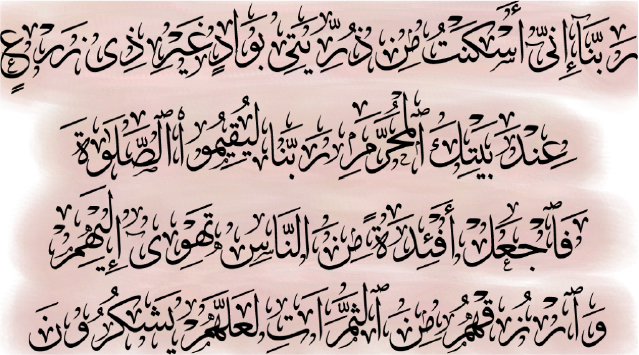 رَبَّنَآ إِنِّىٓ أَسْكَنتُ مِن ذُرِّيَّتِى بِوَادٍ غَيْرِ ذِى زَرْعٍ
عِندَ بَيْتِكَ ٱلْمُحَرَّمِ رَبَّنَا لِيُقِيمُوا۟ ٱلصَّلَوٰةَ
فَٱجْعَلْ أَفْـِٔدَةً مِّنَ ٱلنَّاسِ تَهْوِىٓ إِلَيْهِمْ
وَٱرْزُقْهُم مِّنَ ٱلثَّمَرَٰتِ لَعَلَّهُمْ يَشْكُرُونَ